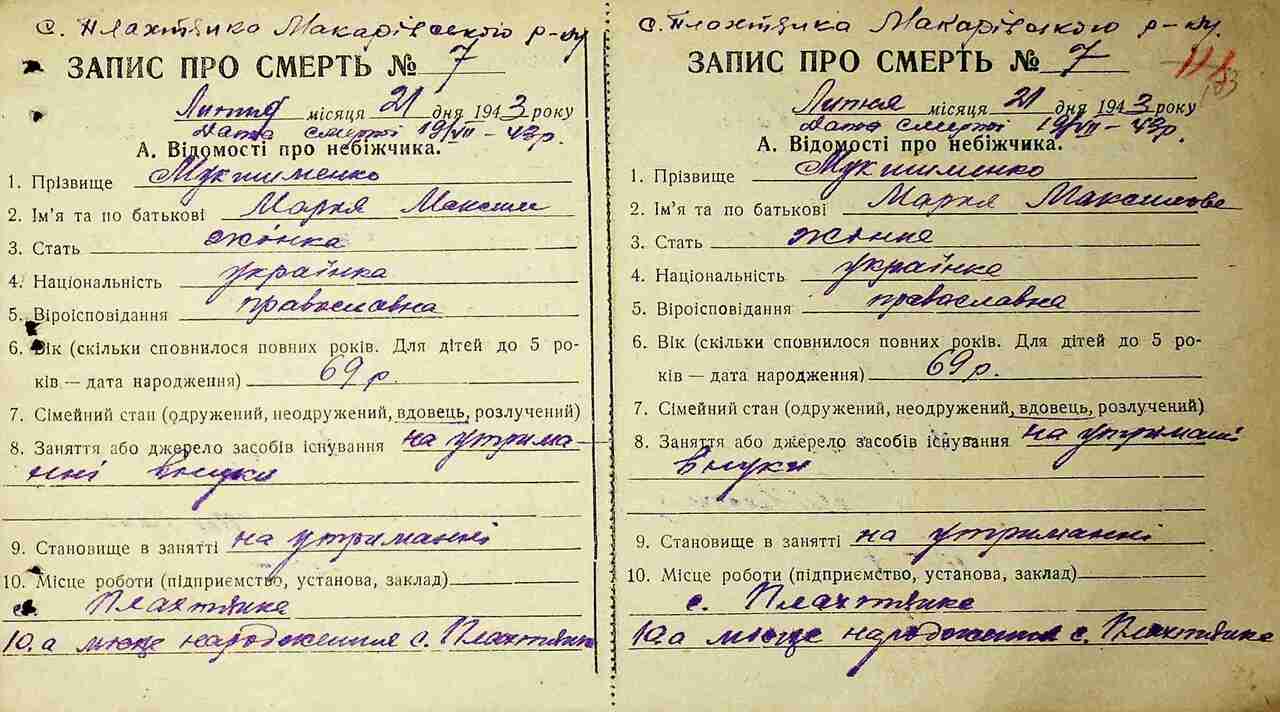 с. Плахтянка Макарівського р-ну
ЗАПИС ПРО СМЕРТЬ № 7
Липня місяця 21 дня 1943 року
Дата смерті 19/VII – 43р.
А. Відомості про небіжчика.
1. Прізвище Мукшименко
2. Ім'я та по батькові Марія Максим
3. Стать жінка
4. Національність українка
5. Віроісповідання православна
6. Вік (скільки сповнилося повних років. Для дітей до 5 ро-
ків — дата народження) 69 р.
7. Сімейний стан (одружений, неодружений, вдовець, розлучений)
8. Заняття або джерело засобів існування на утрима-
нні внука
9. Становище в занятті на утриманні
10. Місце роботи (підприємство, установа, заклад)
с. Плахтянка
10.а місце народження с. Плахтянка
с. Плахтянка Макарівського р-ну
ЗАПИС ПРО СМЕРТЬ № 7
Липня місяця 21 дня 1943 року
Дата смерті 19/VII – 43р.
А. Відомості про небіжчика.
1. Прізвище Мукшименко
2. Ім'я та по батькові Марія Максимове
3. Стать жінка
4. Національність українка
5. Віроісповідання православна
6. Вік (скільки сповнилося повних років. Для дітей до 5 ро-
ків — дата народження) 69 р.
7. Сімейний стан (одружений, неодружений, вдовець, розлучений)
8. Заняття або джерело засобів існування на утриманні
внуки
9. Становище в занятті на утриманні
10. Місце роботи (підприємство, установа, заклад)
с. Плахтянка
10.а місце народження с. Плахтянка